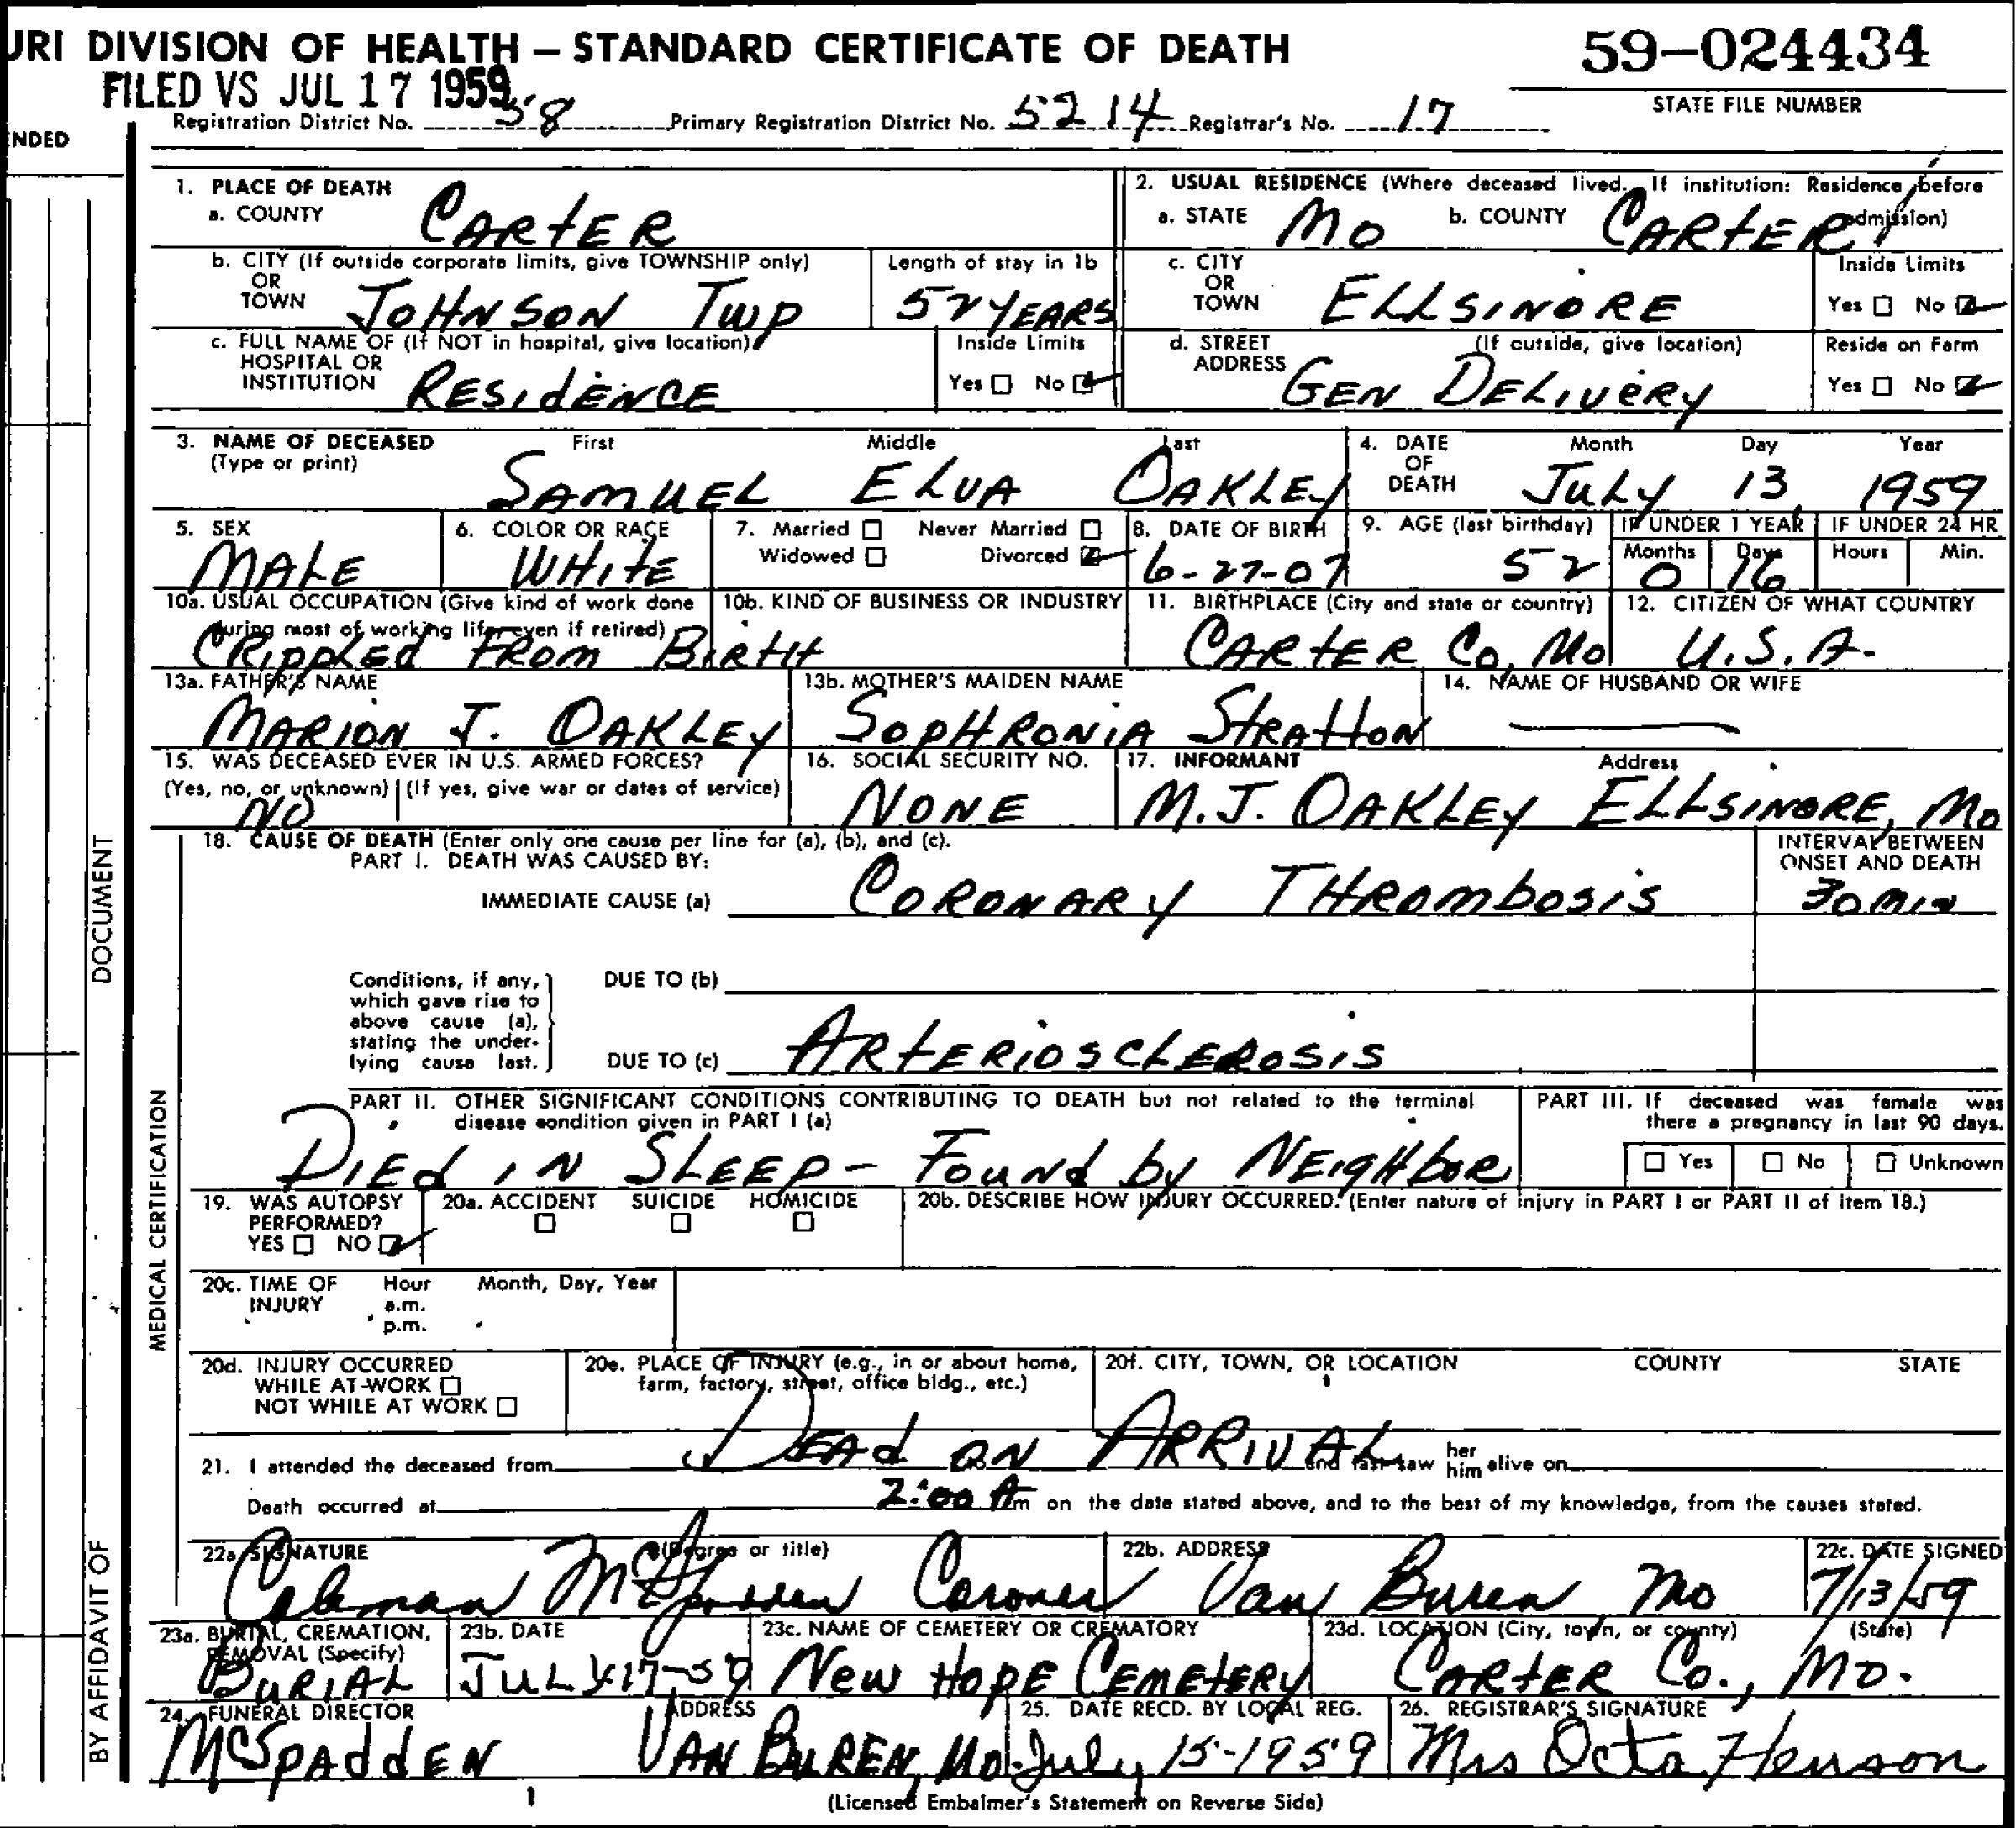 URI DIVISION OF HEALTH — STANDARD CERTIFICATE OF DEATH
59-024434
FILED VS JUL 17 1959
STATE FILE NUMBER
Registration District No. 58 Primary Registration District No. 5214 Registrar's No. 17
ENDED
1. PLACE OF DEATH
a. COUNTY CARTER
2. USUAL RESIDENCE (Where deceased lived. If institution: Residence before admission)
a. STATE MO b. COUNTY CARTER
b. CITY (If outside corporate limits, give TOWNSHIP only)
OR
TOWN JOHNSON TWP
Length of stay in 1b
52 YEARS
c. CITY
OR
TOWN ELLSINORE
Inside Limits
Yes ☐ No ☑
c. FULL NAME OF (If NOT in hospital, give location)
HOSPITAL OR
INSTITUTION RESIDENCE
Inside Limits
Yes ☐ No ☑
d. STREET
ADDRESS (If outside, give location)
GEN DELIVERY
Reside on Farm
Yes ☐ No ☑
3. NAME OF DECEASED
(Type or print)
First Middle Last
SAMUEL ELVA OAKLEY
4. DATE
OF
DEATH
Month Day Year
JULY 13, 1959
5. SEX
MALE
6. COLOR OR RACE
WHITE
7. Married ☐ Never Married ☐
Widowed ☐ Divorced ☑
8. DATE OF BIRTH
6-27-07
9. AGE (last birthday)
52
IF UNDER 1 YEAR
Months Days
0 16
IF UNDER 24 HR
Hours Min.
10a. USUAL OCCUPATION (Give kind of work done
during most of working life, even if retired)
CRIPPLED FROM BIRTH
10b. KIND OF BUSINESS OR INDUSTRY
11. BIRTHPLACE (City and state or country)
CARTER CO, MO
12. CITIZEN OF WHAT COUNTRY
U.S.A.
13a. FATHER'S NAME
MARION J. OAKLEY
13b. MOTHER'S MAIDEN NAME
SOPHRONIA STRATTON
14. NAME OF HUSBAND OR WIFE
15. WAS DECEASED EVER IN U.S. ARMED FORCES?
(Yes, no, or unknown) (If yes, give war or dates of service)
NO
16. SOCIAL SECURITY NO.
NONE
17. INFORMANT Address
M.J. OAKLEY ELLSINORE, MO
18. CAUSE OF DEATH (Enter only one cause per line for (a), (b), and (c).
PART I. DEATH WAS CAUSED BY:
INTERVAL BETWEEN
ONSET AND DEATH
IMMEDIATE CAUSE (a) CORONARY THROMBOSIS 30 MIN
Conditions, if any,
which gave rise to
above cause (a),
stating the under-
lying cause last.
DUE TO (b)
DUE TO (c) ARTERIOSCLEROSIS
PART II. OTHER SIGNIFICANT CONDITIONS CONTRIBUTING TO DEATH but not related to the terminal
disease condition given in PART I (a)
DIED IN SLEEP - FOUND BY NEIGHBOR
PART III. If deceased was female was
there a pregnancy in last 90 days.
☐ Yes ☐ No ☐ Unknown
19. WAS AUTOPSY
PERFORMED?
YES ☐ NO ☑
20a. ACCIDENT SUICIDE HOMICIDE
☐ ☐ ☐
20b. DESCRIBE HOW INJURY OCCURRED. (Enter nature of injury in PART I or PART II of item 18.)
20c. TIME OF
INJURY
Hour Month, Day, Year
a.m.
p.m.
20d. INJURY OCCURRED
WHILE AT WORK ☐
NOT WHILE AT WORK ☐
20e. PLACE OF INJURY (e.g., in or about home,
farm, factory, street, office bldg., etc.)
20f. CITY, TOWN, OR LOCATION COUNTY STATE
DEAD ON ARRIVAL
21. I attended the deceased from and last saw her him alive on
Death occurred at 2:00 A m on the date stated above, and to the best of my knowledge, from the causes stated.
22a. SIGNATURE (Degree or title)
Coleman McSpadden Coroner
22b. ADDRESS
Van Buren, Mo
22c. DATE SIGNED
7/13/59
23a. BURIAL, CREMATION,
REMOVAL (Specify)
BURIAL
23b. DATE
JULY 17-59
23c. NAME OF CEMETERY OR CREMATORY
NEW HOPE CEMETERY
23d. LOCATION (City, town, or county) (State)
CARTER CO., MO.
24. FUNERAL DIRECTOR ADDRESS
McSPADDEN VAN BUREN, MO.
25. DATE RECD. BY LOCAL REG.
July 15-1959
26. REGISTRAR'S SIGNATURE
Mrs Octa Henson
(Licensed Embalmer's Statement on Reverse Side)
DOCUMENT
MEDICAL CERTIFICATION
BY AFFIDAVIT OF